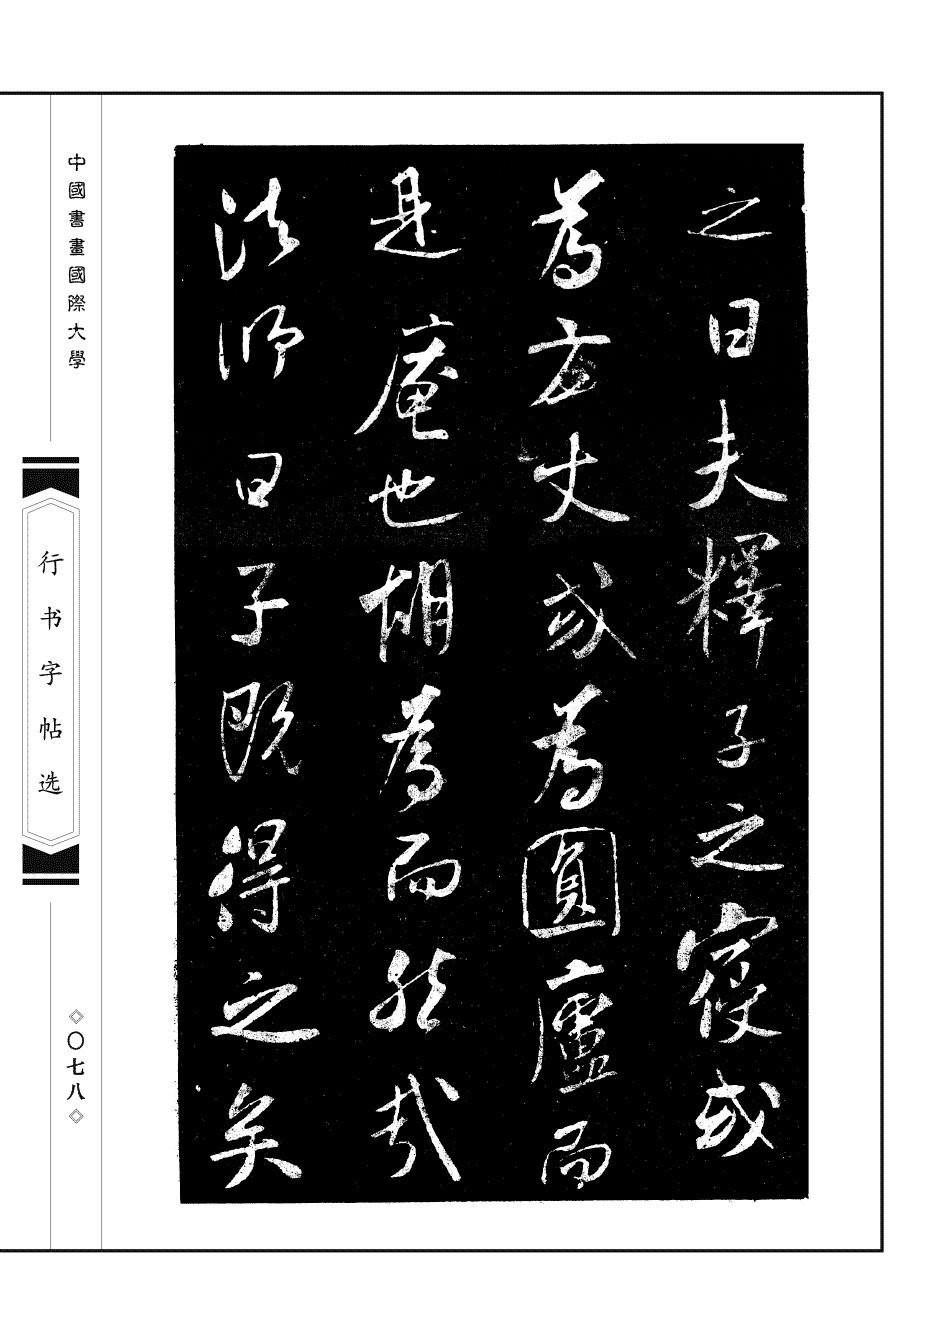 之曰夫釋子之寢或
為方丈或為圓廬而
是庵也胡為而然哉
法師曰子既得之矣
中國書畫國際大學
行书字帖选
◇〇七八◇